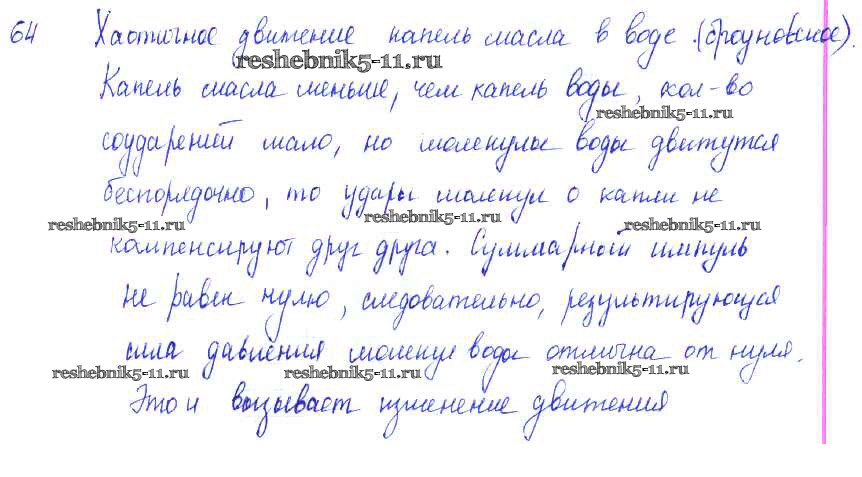 64 Хаотичное движение капель масла в воде (броуновское).
reshebnik5-11.ru
Капель масла меньше, чем капель воды, кол-во
reshebnik5-11.ru
соударений мало, но молекулы воды движутся
беспорядочно, то удары молекул о капли не
reshebnik5-11.ru reshebnik5-11.ru reshebnik5-11.ru
компенсируют друг друга. Суммарный импуль
не равен нулю, следовательно, результирующая
сила давления молекул воды отлична от нуля.
reshebnik5-11.ru reshebnik5-11.ru reshebnik5-11.ru
Это и вызывает изменение движения